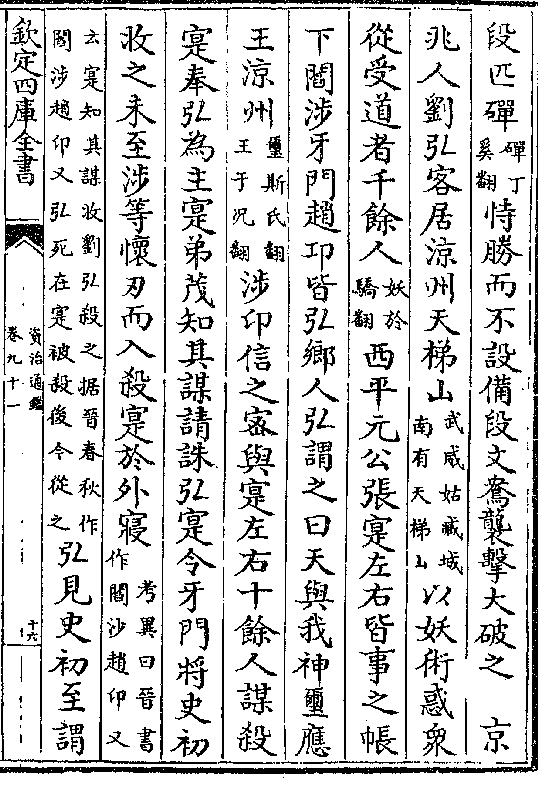 段匹磾磾丁奚翻恃勝而不設備段文鴦襲擊大破之　京
兆人劉弘客居涼州天梯山武威姑臧城南有天梯山以妖術惑衆
從受道者千餘人妖於驕翻西平元公張寔左右皆事之帳
下閻涉牙門趙卬皆弘鄉人弘謂之曰天與我神璽應
王涼州璽斯氏翻王于況翻涉卬信之密與寔左右十餘人謀殺
寔奉弘為主寔弟茂知其謀請誅弘寔令牙門將史初
收之未至涉等懷刃而入殺寔於外寢考異曰晉書作閻沙趙卬又
云寔知其謀收劉弘殺之据晉春秋作閻涉趙卬又弘死在寔被殺後今從之弘見史初至謂
欽定四庫全書
資治通鑑
卷九十一
十六